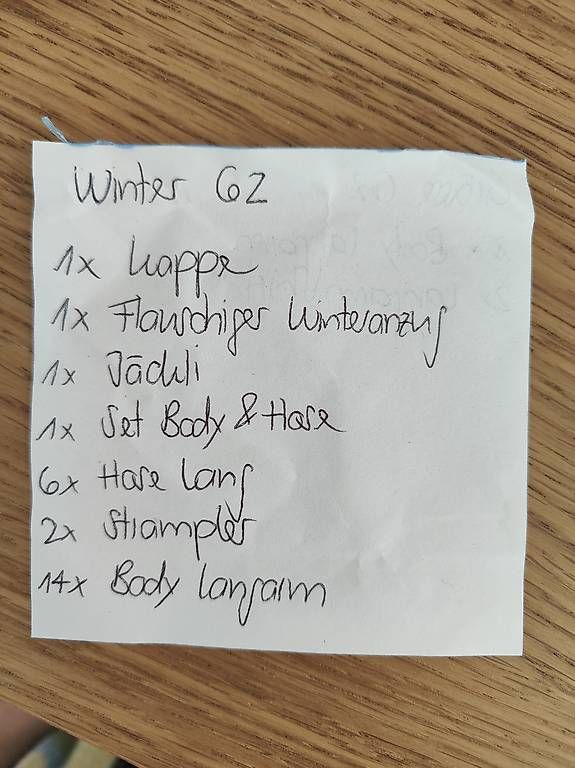 Winter 62
1x Kappe
1x Flauschiger Winteranzug
1x Jäckli
1x Set Body & Hose
6x Hose lang
2x Strampler
14x Body langarm